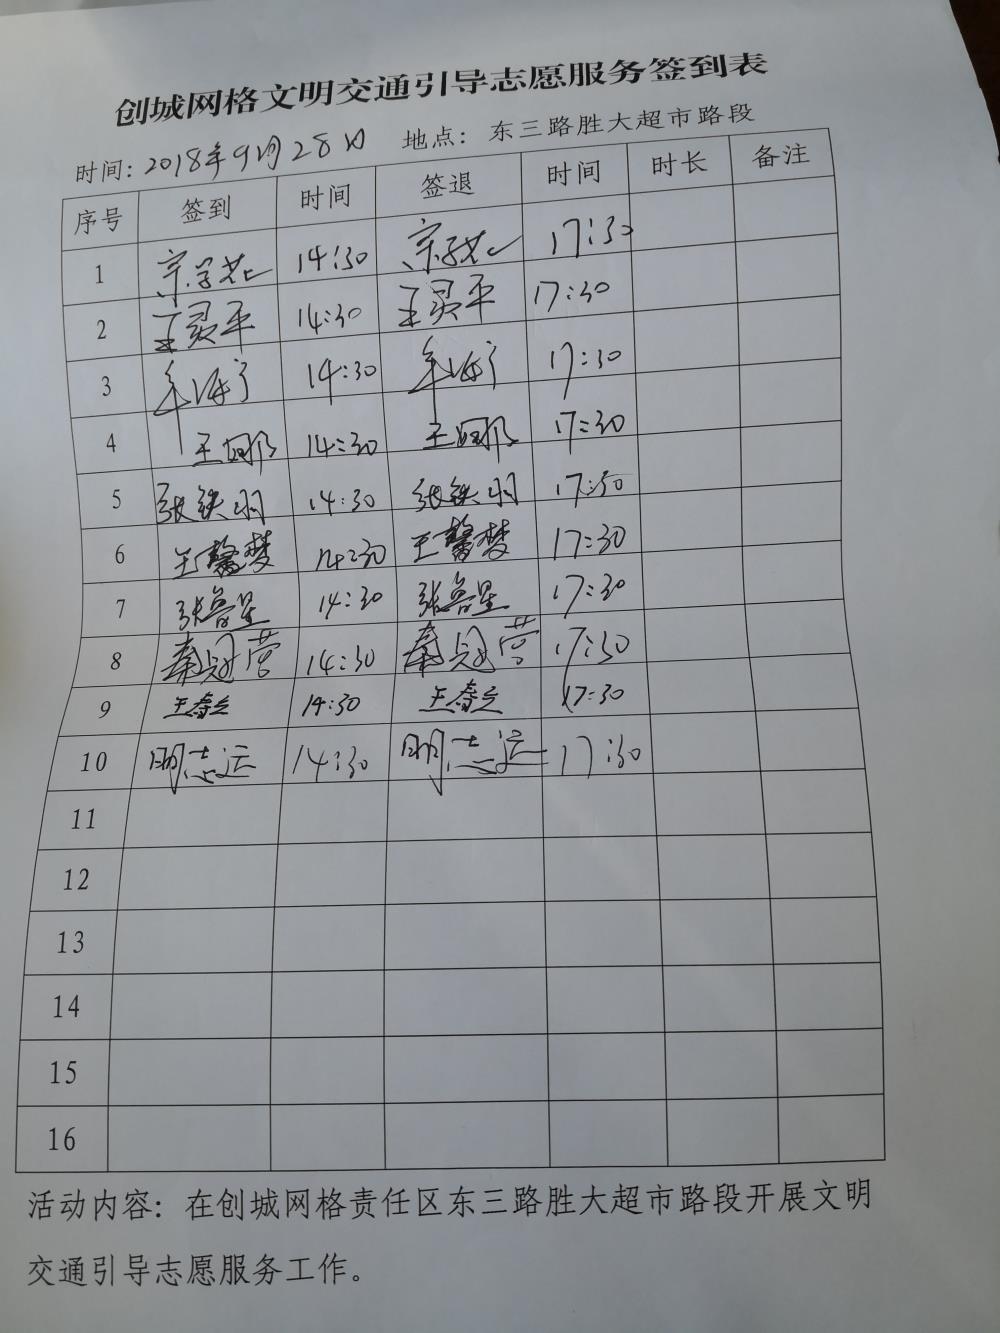 创城网格文明交通引导志愿服务签到表
时间: 2018年9月28日 地点: 东三路胜大超市路段
序号 签到 时间 签退 时间 时长 备注
1 14:30 17:30
2 王灵平 14:30 王灵平 17:30
3 14:30 17:30
4 14:30 17:30
5 张铁羽 14:30 张铁羽 17:30
6 王馨梦 14:30 王馨梦 17:30
7 张鲁星 14:30 张鲁星 17:30
8 秦冠营 14:30 秦冠营 17:30
9 14:30 17:30
10 明志运 14:30 明志运 17:30
11
12
13
14
15
16
活动内容: 在创城网格责任区东三路胜大超市路段开展文明
交通引导志愿服务工作。